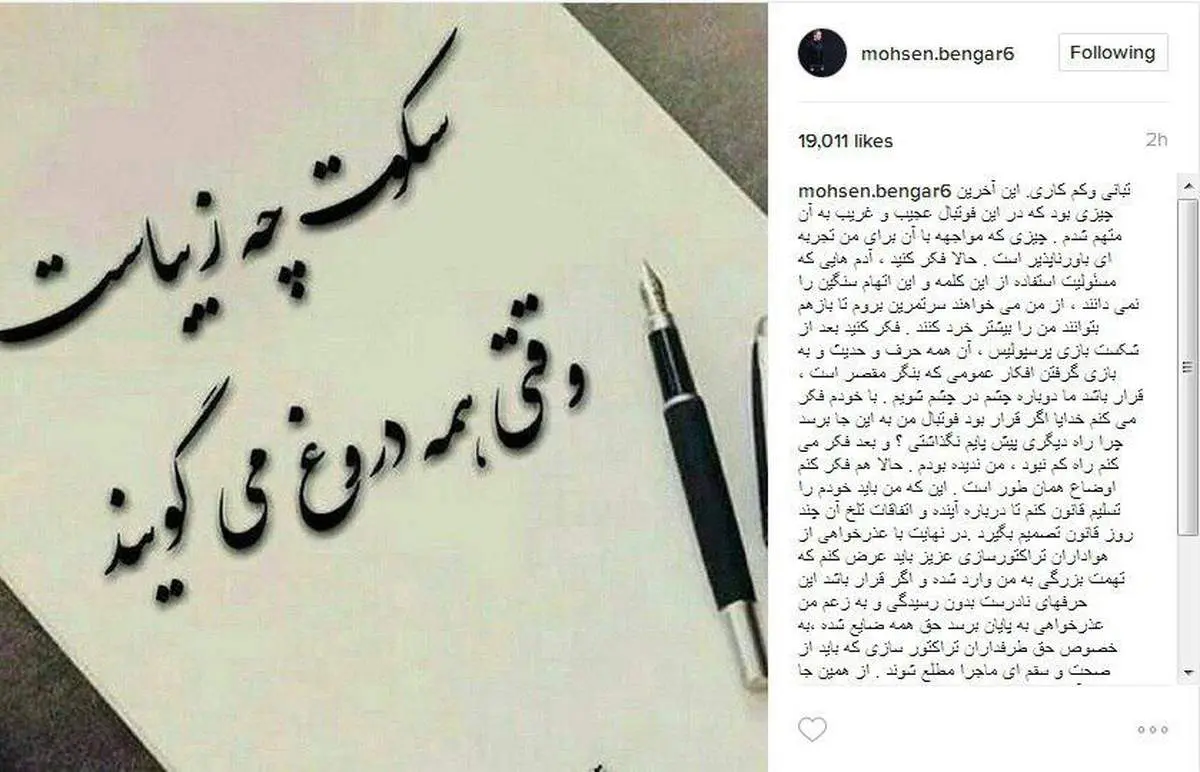 سکوت چه زیباست
وقتی همه دروغ می گویند
mohsen.bengar6
Following
19,011 likes
2h
mohsen.bengar6 تبانی وکم کاری. این آخرین
چیزی بود که در این فوتبال عجیب و غریب به آن
متهم شدم . چیزی که مواجهه با آن برای من تجربه
ای باورناپذیر است . حالا فکر کنید ، آدم هایی که
مسئولیت استفاده از این کلمه و این اتهام سنگین را
نمی دانند ، از من می خواهند سرتمرین بروم تا بازهم
بتوانند من را بیشتر خرد کنند . فکر کنید بعد از
شکست بازی پرسپولیس ، آن همه حرف و حدیث و به
بازی گرفتن افکار عمومی که بنگر مقصر است ،
قرار باشد ما دوباره چشم در چشم شویم . با خودم فکر
می کنم خدایا اگر قرار بود فوتبال من به این جا برسد
چرا راه دیگری پیش پایم نگذاشتی ؟ و بعد فکر می
کنم راه کم نبود ، من ندیده بودم . حالا هم فکر کنم
اوضاع همان طور است . این که من باید خودم را
تسلیم قانون کنم تا درباره آینده و اتفاقات تلخ آن چند
روز قانون تصمیم بگیرد .در نهایت با عذرخواهی از
هواداران تراکتورسازی عزیز باید عرض کنم که
تهمت بزرگی به من وارد شده و اگر قرار باشد این
حرفهای نادرست بدون رسیدگی و به زعم من
عذرخواهی به پایان برسد حق همه ضایع شده ،به
خصوص حق طرفداران تراکتور سازی که باید از
صحت و سقم ای ماجرا مطلع شوند . از همین جا